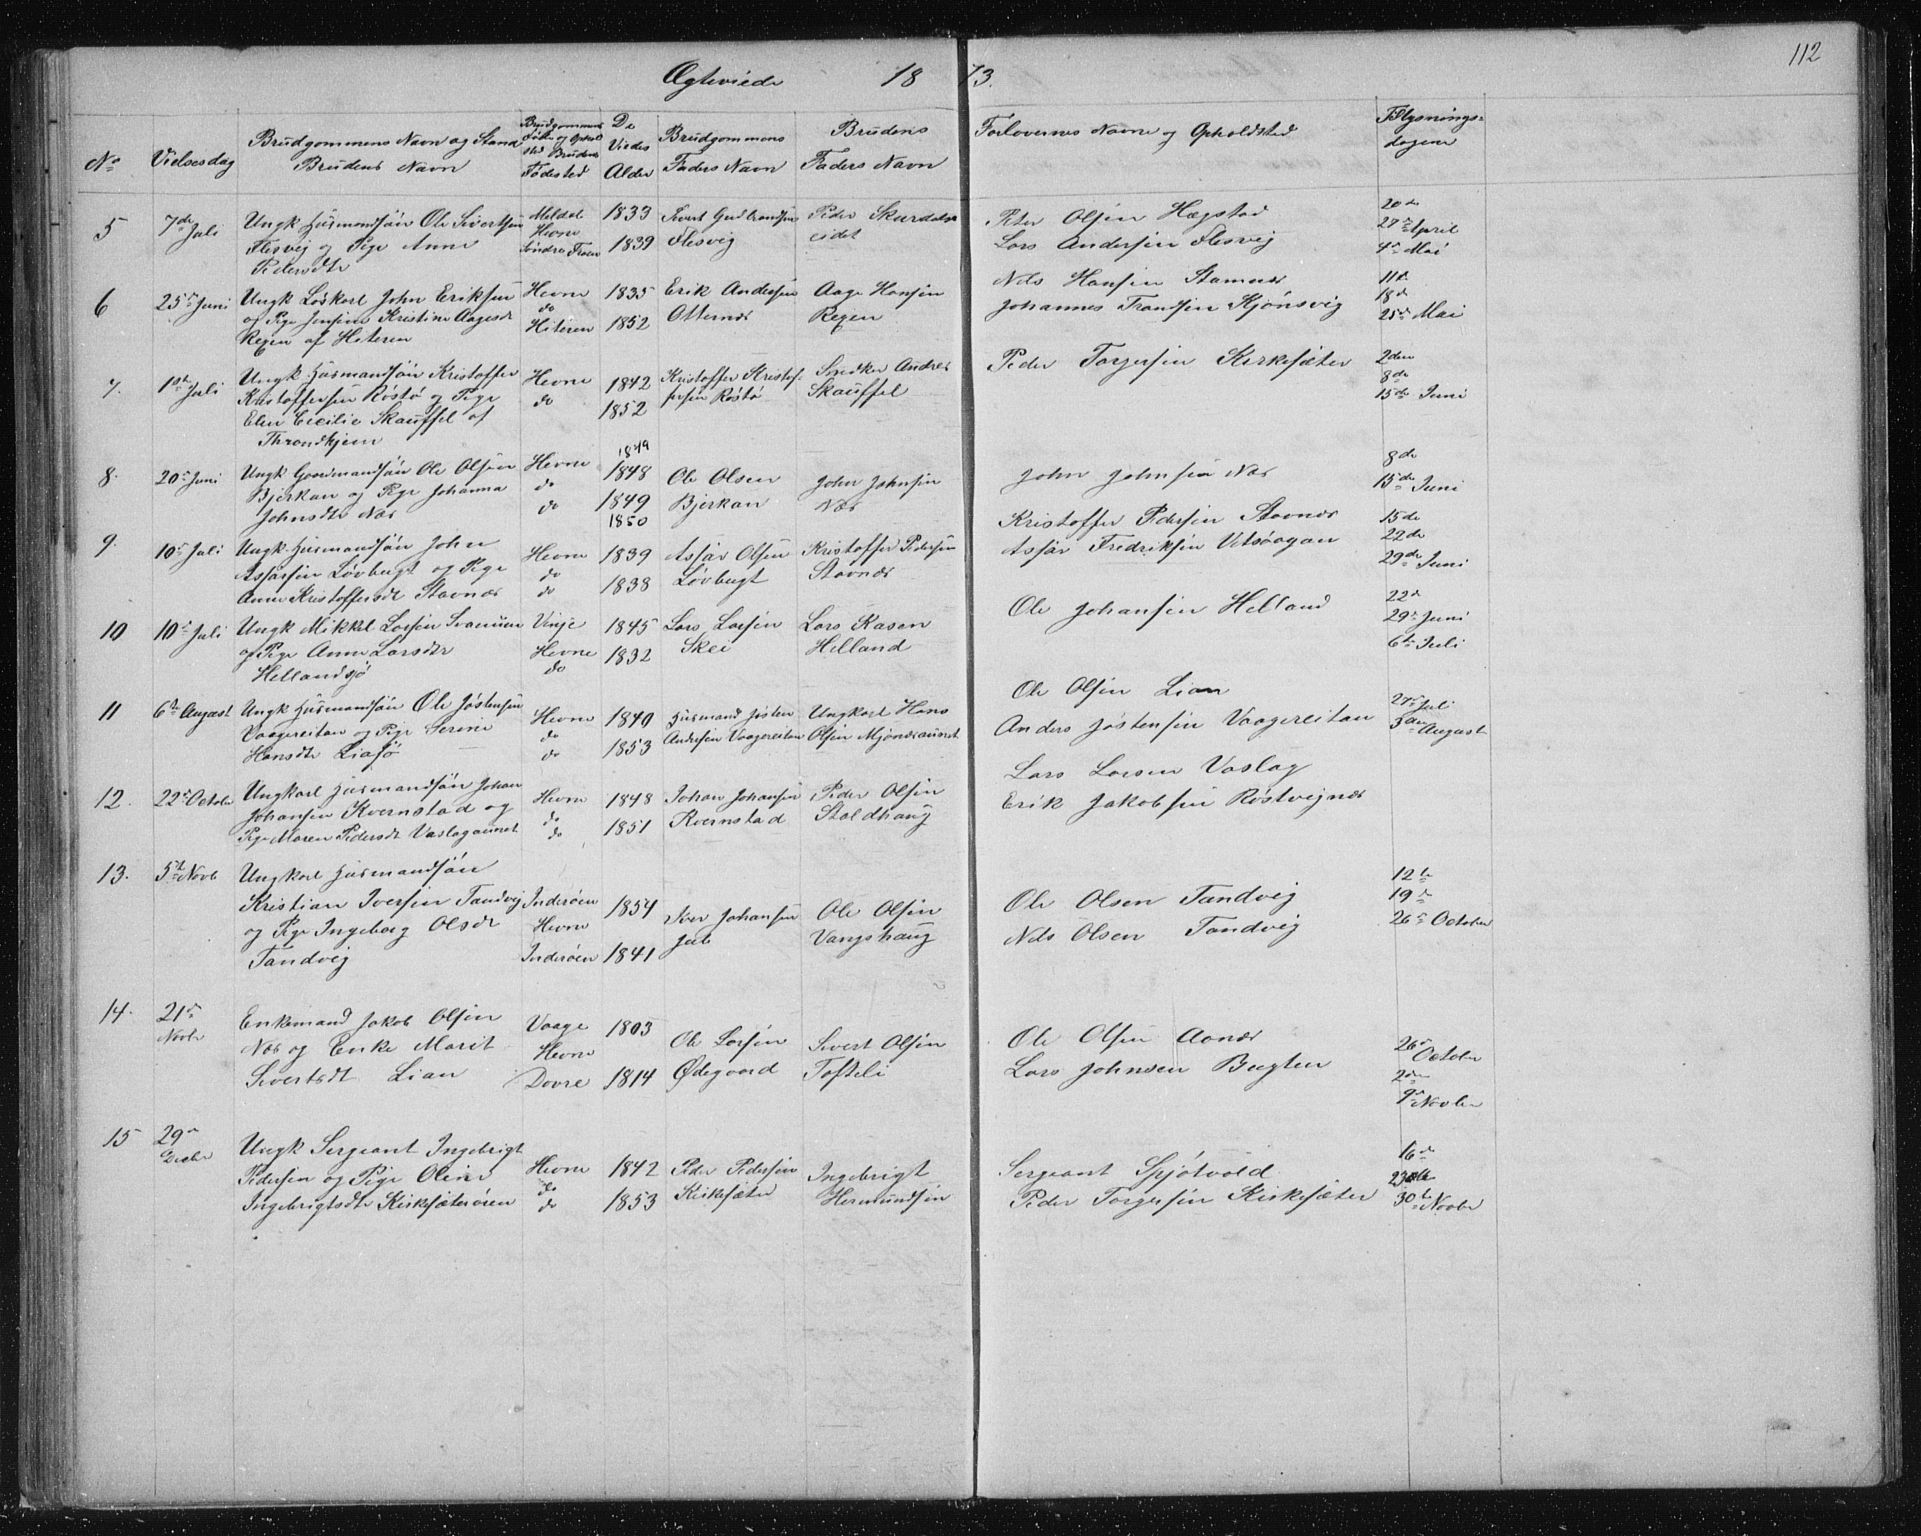 112
Ægteviede 18 73.
No
Vielsesdag
Brudgommens Navn og Stand
Brudens Navn
Brudgommens
Føde og Ophol
sted Brudens
Fødested
De
Viedes
Alder
Brudgommens
Faders Navn
Brudens
Faders Navn
Forlovernes Navne og Opholdsted
Tlysnings-
dagene
5
7de Juli
Ungk Husmandsøn Ole Sivertsen
Flesvig og Pige Anne
Pedersdtr
Meldal
Hevne
Søndre Froen
1833
1839
Sivert Gudbrandsen
Flesvig
Peder Skardals
eidet
Peter Olsen Hægstad
Lars Andersen Flesvig
20de
27de April
4de Mai
6
25de Juni
Ungk Løskarl John Eriksen
og Pige Jensine Kristine Aagesdr
Regen af Hiteren
Hevne
do
Hiteren
1835
1852
Erik Andersen
Otternes
Aage Hansen
Regen
Nils Hansen Stamnes
Johannes Frandsen Kjønsvig
11te
18de
25de Mai
7.
1ste Juli
Ungk. Husmandsøn Kristoffer
Kristoffersen Røstø og Pige
Elen Cecilie Skauffel af
Throndhjem
Hevne
do
1842
1852
Kristoffer Kristof-
fersen Røstø
Snedker Andres
Skauffel
Peder Torgersen Kirkesæter
2den
8de
15de Juni
8.
20de Juni
Ungk Gaardmandsøn Ole Olsen
Bjerkan og Pige Johanna
Johnsdtr Næs
Hevne
do
do
1849
1848
1849
1850
Ole Olsen
Bjerkan
John Johnsen
Næs
John Johnsen Næs
8de
15de Juni
9.
10de Juli
Ungk. Husmandsøn John
Assersen Løvbugt og Pige
Anne Kristoffersdt Stavnes
Hevne
do
do
1839
1838
Asser Olsen
Løvbugt
Kristoffer Pedersen
Stavnes
Kristoffer Pedersen Stavnes
Asser Fredriksen Vitsøagan
15de
22de
29de Juni
10
10de Juli
Ungk Mikkel Larsen Svanem
og Pige Anne Larsdtr
Hellandsjø
Vinje
Hevne
do
1845
1832
Lars Larsen
Skei
Lars Rasen
Helland
Ole Johansen Helland
22de
29de Juni
6te Juli
11
6te August
Ungk Husmandsøn Ole Jøstensen
Vaagereitan og Pige Serine
Hansdtr Liasø
Hevne
do
do
1840
1853
Husmand Jøsten
Andersen Vaagereitan
Ungkarl Hans
Olsen Mjønesaunet
Ole Olsen Lian
Anders Jøstensen Vaagereitan
27de Juli
3die August
12.
22de October
Ungkarl Husmandsøn Johan
Johansen Kvernstad og
Pige Maren Pedersdt Vaslagaunet
Hevne
do
do
1848
1851
Johan Johansen
Kvernstad
Peder Olsen
Staldhaug
Lars Larsen Vaslag
Erik Jakobsen Røstvignes
13.
5te Novb
Ungkarl Husmandsøn
Kristian Iversen Tandvig
og Pige Ingeborg Olsdr
Tandvig
Inderøen
Hevne
Inderøen
1854
1841
Iver Johansen
Ole Olsen
Vangshaug
Ole Olsen Tandvig
Nils Olsen Tandvig
12te
19de
26de October
14.
21de
Novbr
Enkemand Jakob Olsen
Næs og Enke Marit
Sivertsdt Lian
Vaage
Hevne
Dovre
1803
1814
Ole Larsen
Ødegaard
Sivert Olsen
Tofteli
Ole Olsen Aanes
Lars Johnsen Bugten
26de
October
2den
9de Novbr
15
29de
Decbr
Ungk Sergeant Ingebrigt
Pedersen og Pige Oline
Ingebrigtsdtr Kirkesæterøren
Hevne
do
do
1842
1853
Peder Pedersen
Kirkesæter
Ingebrigt
Hermundsen
Sergeant Spjøtvold
Peder Torgersen Kirkesæter
16de
23de
30te Novbr